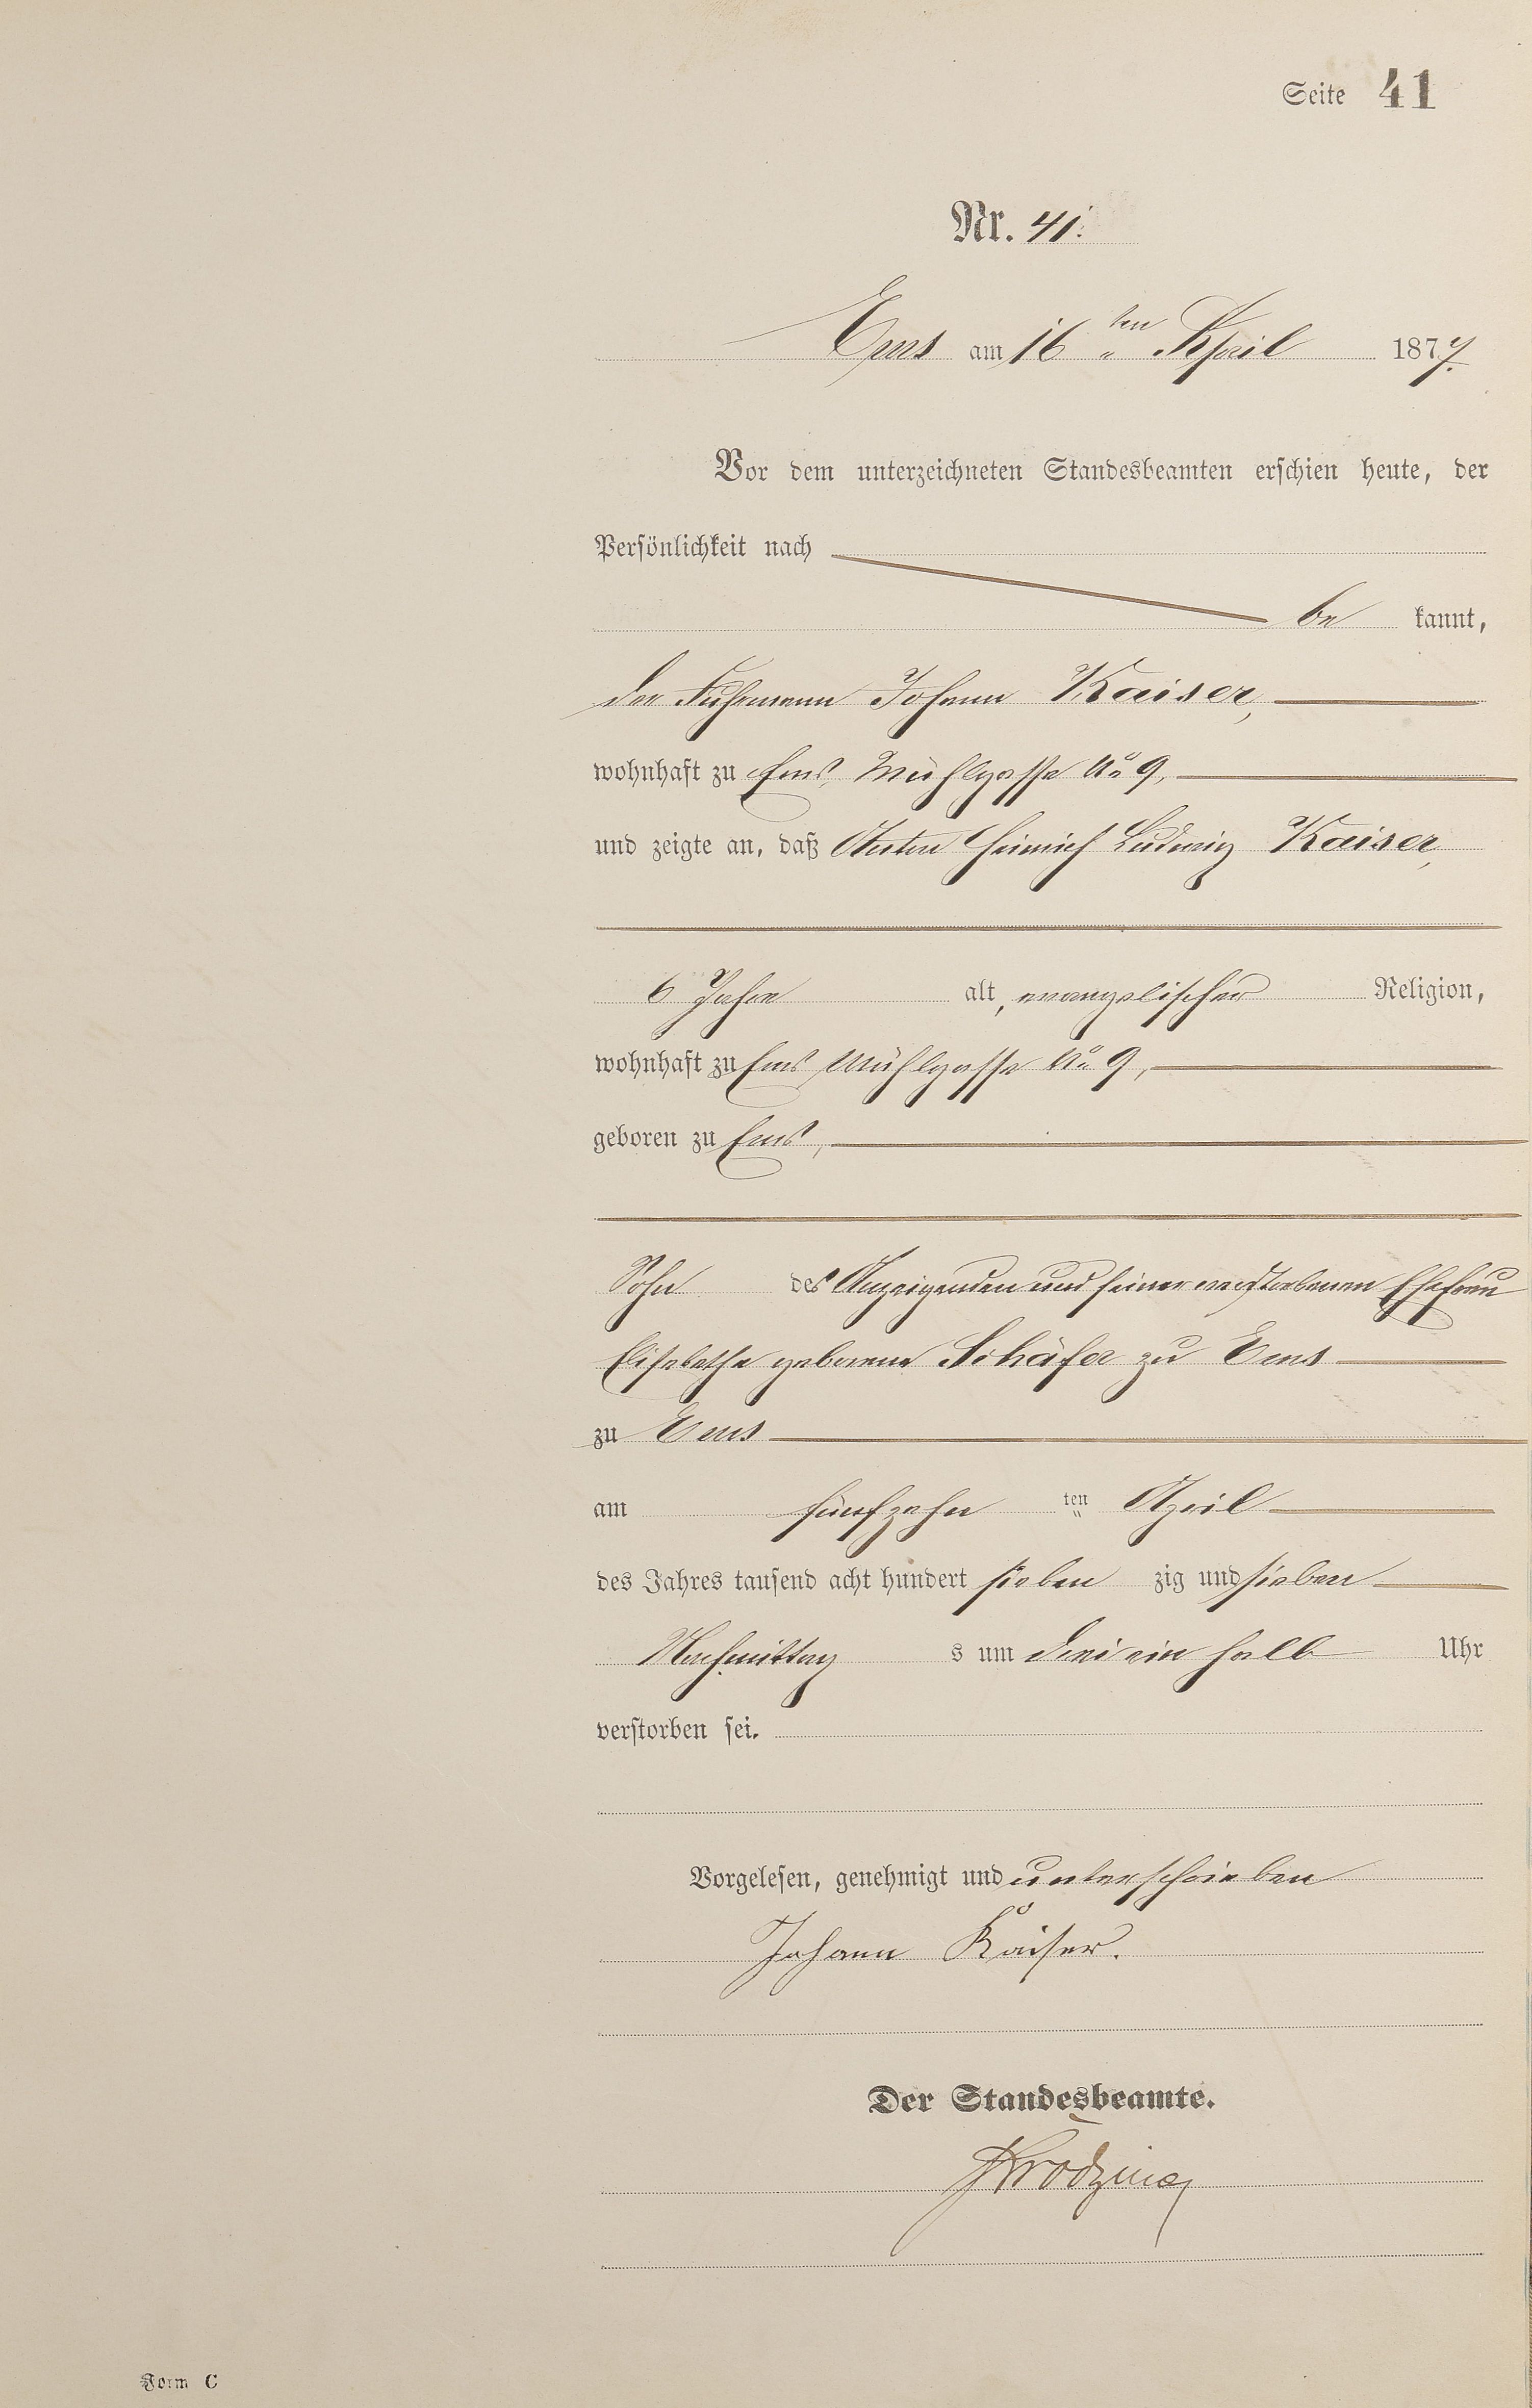 Seite 41
Nr. 41.
Ems am 16ten April 1877.
Vor dem unterzeichneten Standesbeamten erschien heute, der
Persönlichkeit nach
be kannt,
der Fuhrmann Johann Kaiser,
wohnhaft zu Ems, Mühlgasse No 9,
und zeigte an, daß Anton Heinrich Ludwig Kaiser,
6 Jahre alt, evangelischer Religion,
wohnhaft zu Ems Mühlgasse No 9,
geboren zu Ems,
Sohn des Anzeigenden und seiner verstorbenen Ehefrau
Elisabetha geborene Schäfer zu Ems
zu Ems
am fünfzehn ten April
des Jahres tausend acht hundert sieben zig und sieben
Nachmittag s um drei ein halb Uhr
verstorben sei.
Vorgelesen, genehmigt und unterschrieben
Johann Kaiser.
Der Standesbeamte.
Form C